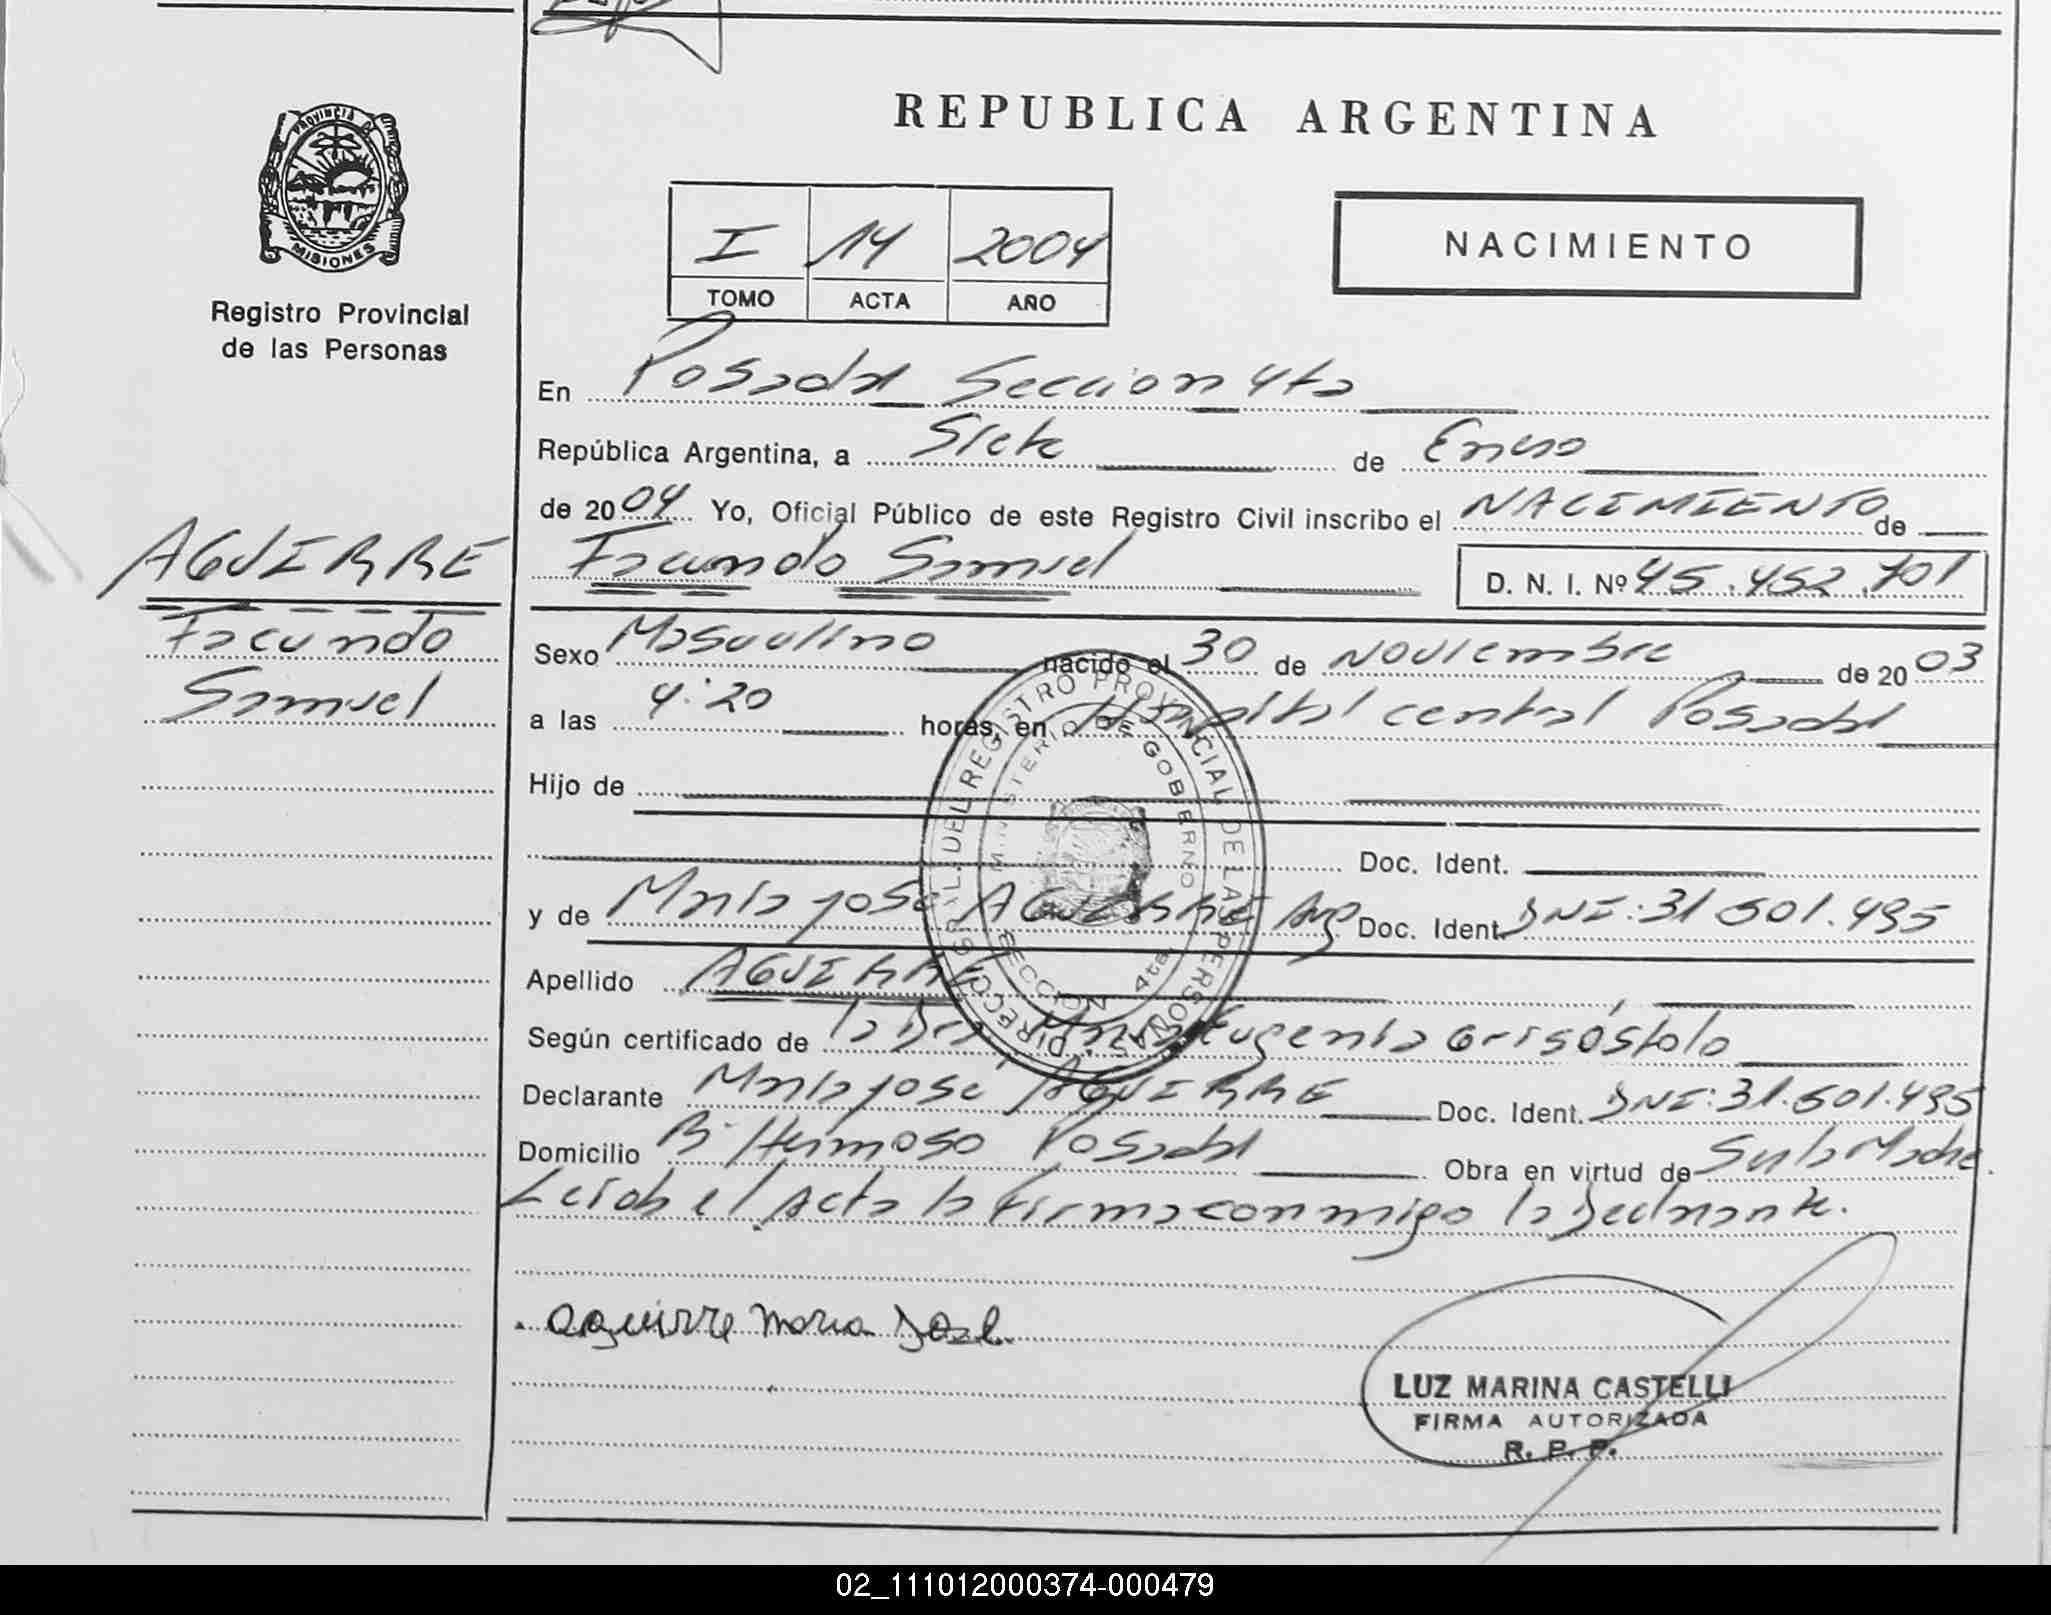 PROVINCIA DE
MISIONES
Registro Provincial
de las Personas
AGUIRRE
Facundo
Samuel
REPUBLICA ARGENTINA
I 14 2004
TOMO ACTA AÑO
NACIMIENTO
En Posadas Seccion 4ta
República Argentina, a Siete de Enero
de 2004 Yo, Oficial Público de este Registro Civil inscribo el NACIMIENTO de
Facundo Samuel D. N. I. Nº 45.452.701
Sexo Masculino nacido el 30 de Noviembre de 2003
a las 4:20 horas, en Hospital central Posadas
Hijo de
Doc. Ident.
y de Maria josé AGUIRRE Arg Doc. Ident. DNI: 31.601.495
Apellido AGUIRRE
Según certificado de la Dra. Maria Eugenia Grisóstolo
Declarante Maria josé AGUIRRE Doc. Ident. DNI: 31.601.495
Domicilio Bº Hermoso Posadas Obra en virtud de Ser la Madre.
Leida el Acta la firma conmigo la Declarante.
aguirre maria José
LUZ MARINA CASTELLI
FIRMA AUTORIZADA
R. P. P.
DIRECCION GRAL. DEL REGISTRO PROVINCIAL DE LAS PERSONAS
MINISTERIO DE GOBIERNO
SECCION 4ta
02_111012000374-000479